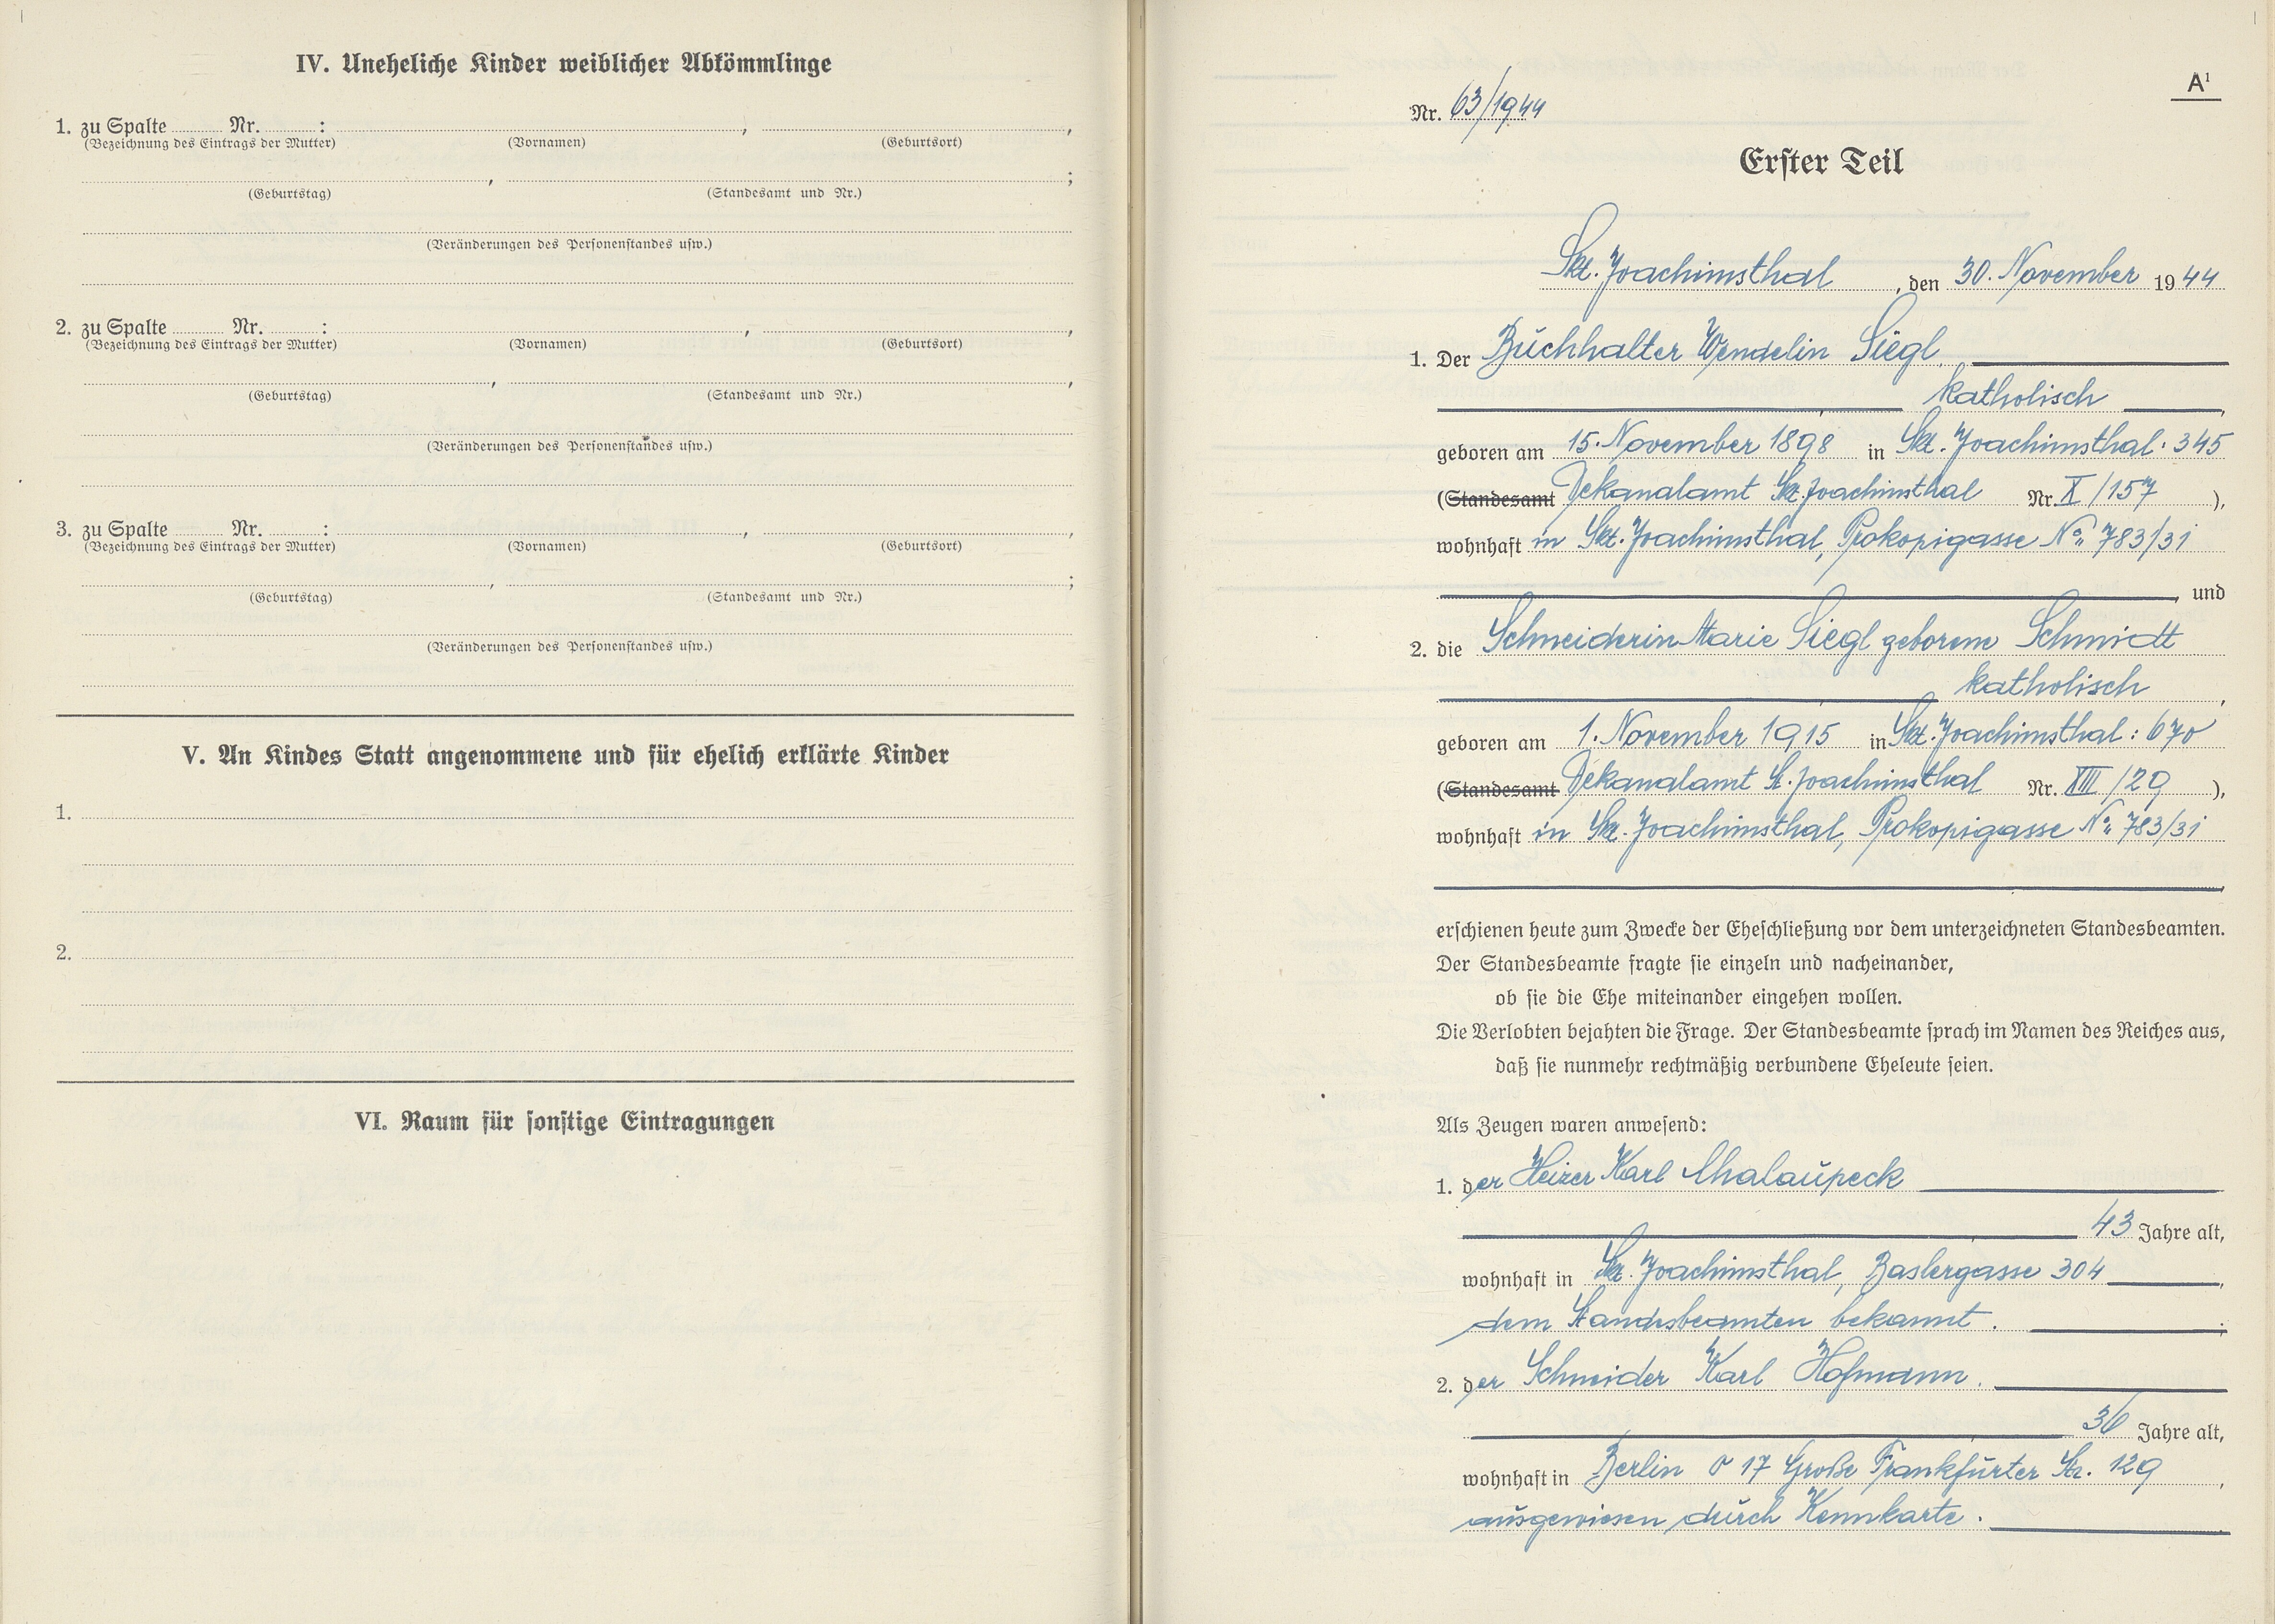 IV. Uneheliche Kinder weiblicher Abkömmlinge
1. zu Spalte ........ Nr. ........ : ........ , ........ ,
(Bezeichnung des Eintrags der Mutter) (Vornamen) (Geburtsort)
........ , ........ ;
(Geburtstag) (Standesamt und Nr.)
(Veränderungen des Personenstandes usw.)
2. zu Spalte ........ Nr. ........ : ........ , ........ ,
(Bezeichnung des Eintrags der Mutter) (Vornamen) (Geburtsort)
........ , ........ ,
(Geburtstag) (Standesamt und Nr.)
(Veränderungen des Personenstandes usw.)
3. zu Spalte ........ Nr. ........ : ........ , ........ ,
(Bezeichnung des Eintrags der Mutter) (Vornamen) (Geburtsort)
........ , ........ ;
(Geburtstag) (Standesamt und Nr.)
(Veränderungen des Personenstandes usw.)
V. An Kindes Statt angenommene und für ehelich erklärte Kinder
1.
2.
VI. Raum für sonstige Eintragungen
A¹
Nr. 63/1944
Erster Teil
Skt. Joachimsthal, den 30. November 1944
1. Der Buchhalter Wendelin Siegl
katholisch,
geboren am 15. November 1898 in Skt. Joachimsthal: 345
(Standesamt Dekanalamt Skt. Joachimsthal Nr. X/157 ),
wohnhaft in Skt. Joachimsthal, Prokopigasse No 783/31
, und
2. die Schneiderin Marie Siegl geborene Schmidt
katholisch,
geboren am 1. November 1915 in Skt. Joachimsthal: 670
(Standesamt Dekanalamt St. Joachimsthal Nr. XIII/29 ),
wohnhaft in Skt. Joachimsthal, Prokopigasse No 783/31
erschienen heute zum Zwecke der Eheschließung vor dem unterzeichneten Standesbeamten.
Der Standesbeamte fragte sie einzeln und nacheinander,
ob sie die Ehe miteinander eingehen wollen.
Die Verlobten bejahten die Frage. Der Standesbeamte sprach im Namen des Reiches aus,
daß sie nunmehr rechtmäßig verbundene Eheleute seien.
Als Zeugen waren anwesend:
1. der Heizer Karl Chalaupeck
43 Jahre alt,
wohnhaft in Skt. Joachimsthal, Baslergasse 304,
dem Standesbeamten bekannt. ;
2. der Schneider Karl Hofmann.
36 Jahre alt,
wohnhaft in Berlin O 17 Große Frankfurter Str. 129,
ausgewiesen durch Kennkarte.